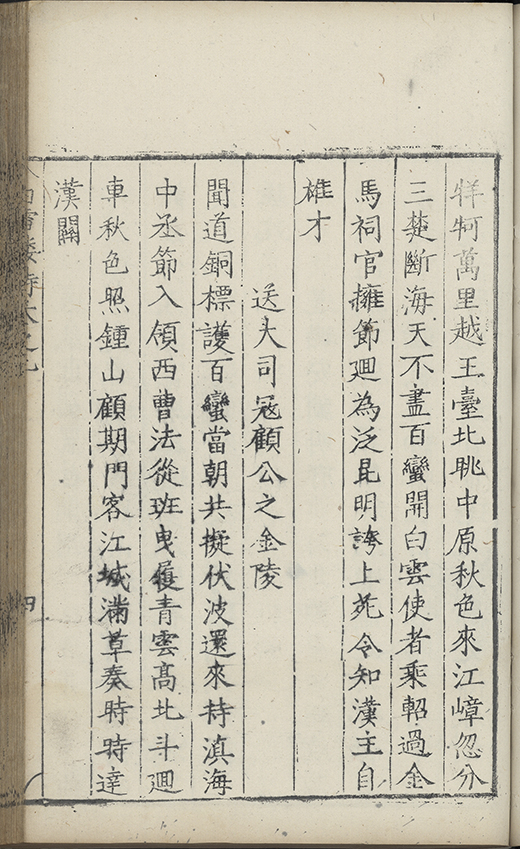 牂牁萬里越王臺北眺中原秋色來江嶂忽分
三楚斷海天不盡百蠻開白雲使者乘軺過金
馬祠官擁節廻為泛昆明誇上苑令知漢主自
雄才
送大司冦顧公之金陵
聞道銅標護百蠻當朝共擬伏波還來持滇海
中丞節入領西曹法從班曳履青雲髙北斗廻
車秋色照鍾山顧期門客江城滿草奏時時達
漢闗
白雪樓
四